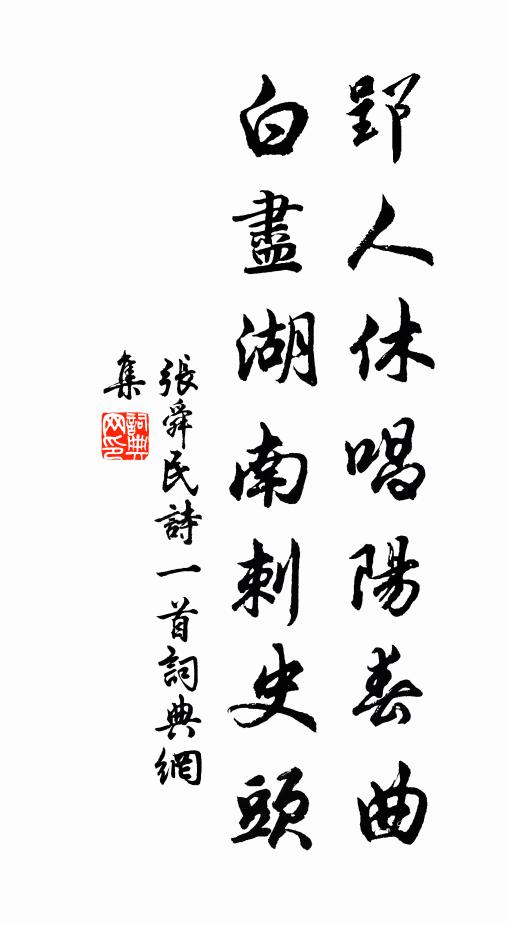 郢人休唱陽春曲
白盡湖南刺史頭
張舜民詩一首詞典網
集
詞典
网印